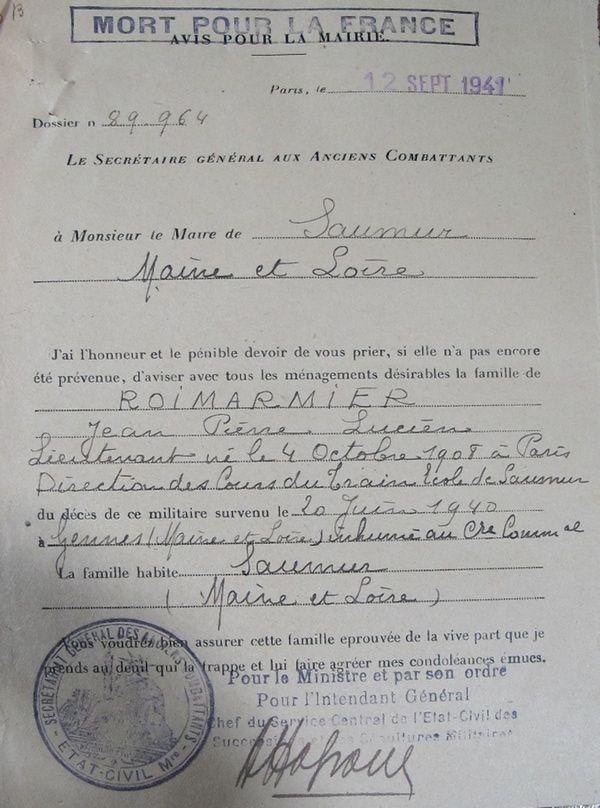 13
MORT POUR LA FRANCE
AVIS POUR LA MAIRIE.
Paris, le 12 SEPT 1941
Dossier n 89.964
LE SECRÉTAIRE GÉNÉRAL AUX ANCIENS COMBATTANTS
à Monsieur le Maire de Saumur
Maine et Loire
J'ai l'honneur et le pénible devoir de vous prier, si elle n'a pas encore
été prévenue, d'aviser avec tous les ménagements désirables la famille de
ROIMARMIER
Jean Pierre Lucien
Lieutenant né le 4 Octobre 1908 à Paris
Direction des Cours du Train Ecole de Saumur
du décès de ce militaire survenu le 20 Juin 1940
à Gennes (Maine et Loire) inhumé au Cre Commal
La famille habite Saumur
(Maine et Loire)
Vous voudrez bien assurer cette famille eprouvée de la vive part que je
prends au deuil qui la frappe et lui faire agréer mes condoléances émues.
Pour le Ministre et par son ordre
Pour l'Intendant Général
Chef du Service Central de l'Etat-Civil des
Successions et des Sépultures Militaires
SECRÉTARIAT GÉNÉRAL DES ANCIENS COMBATTANTS
ETAT-CIVIL Mre